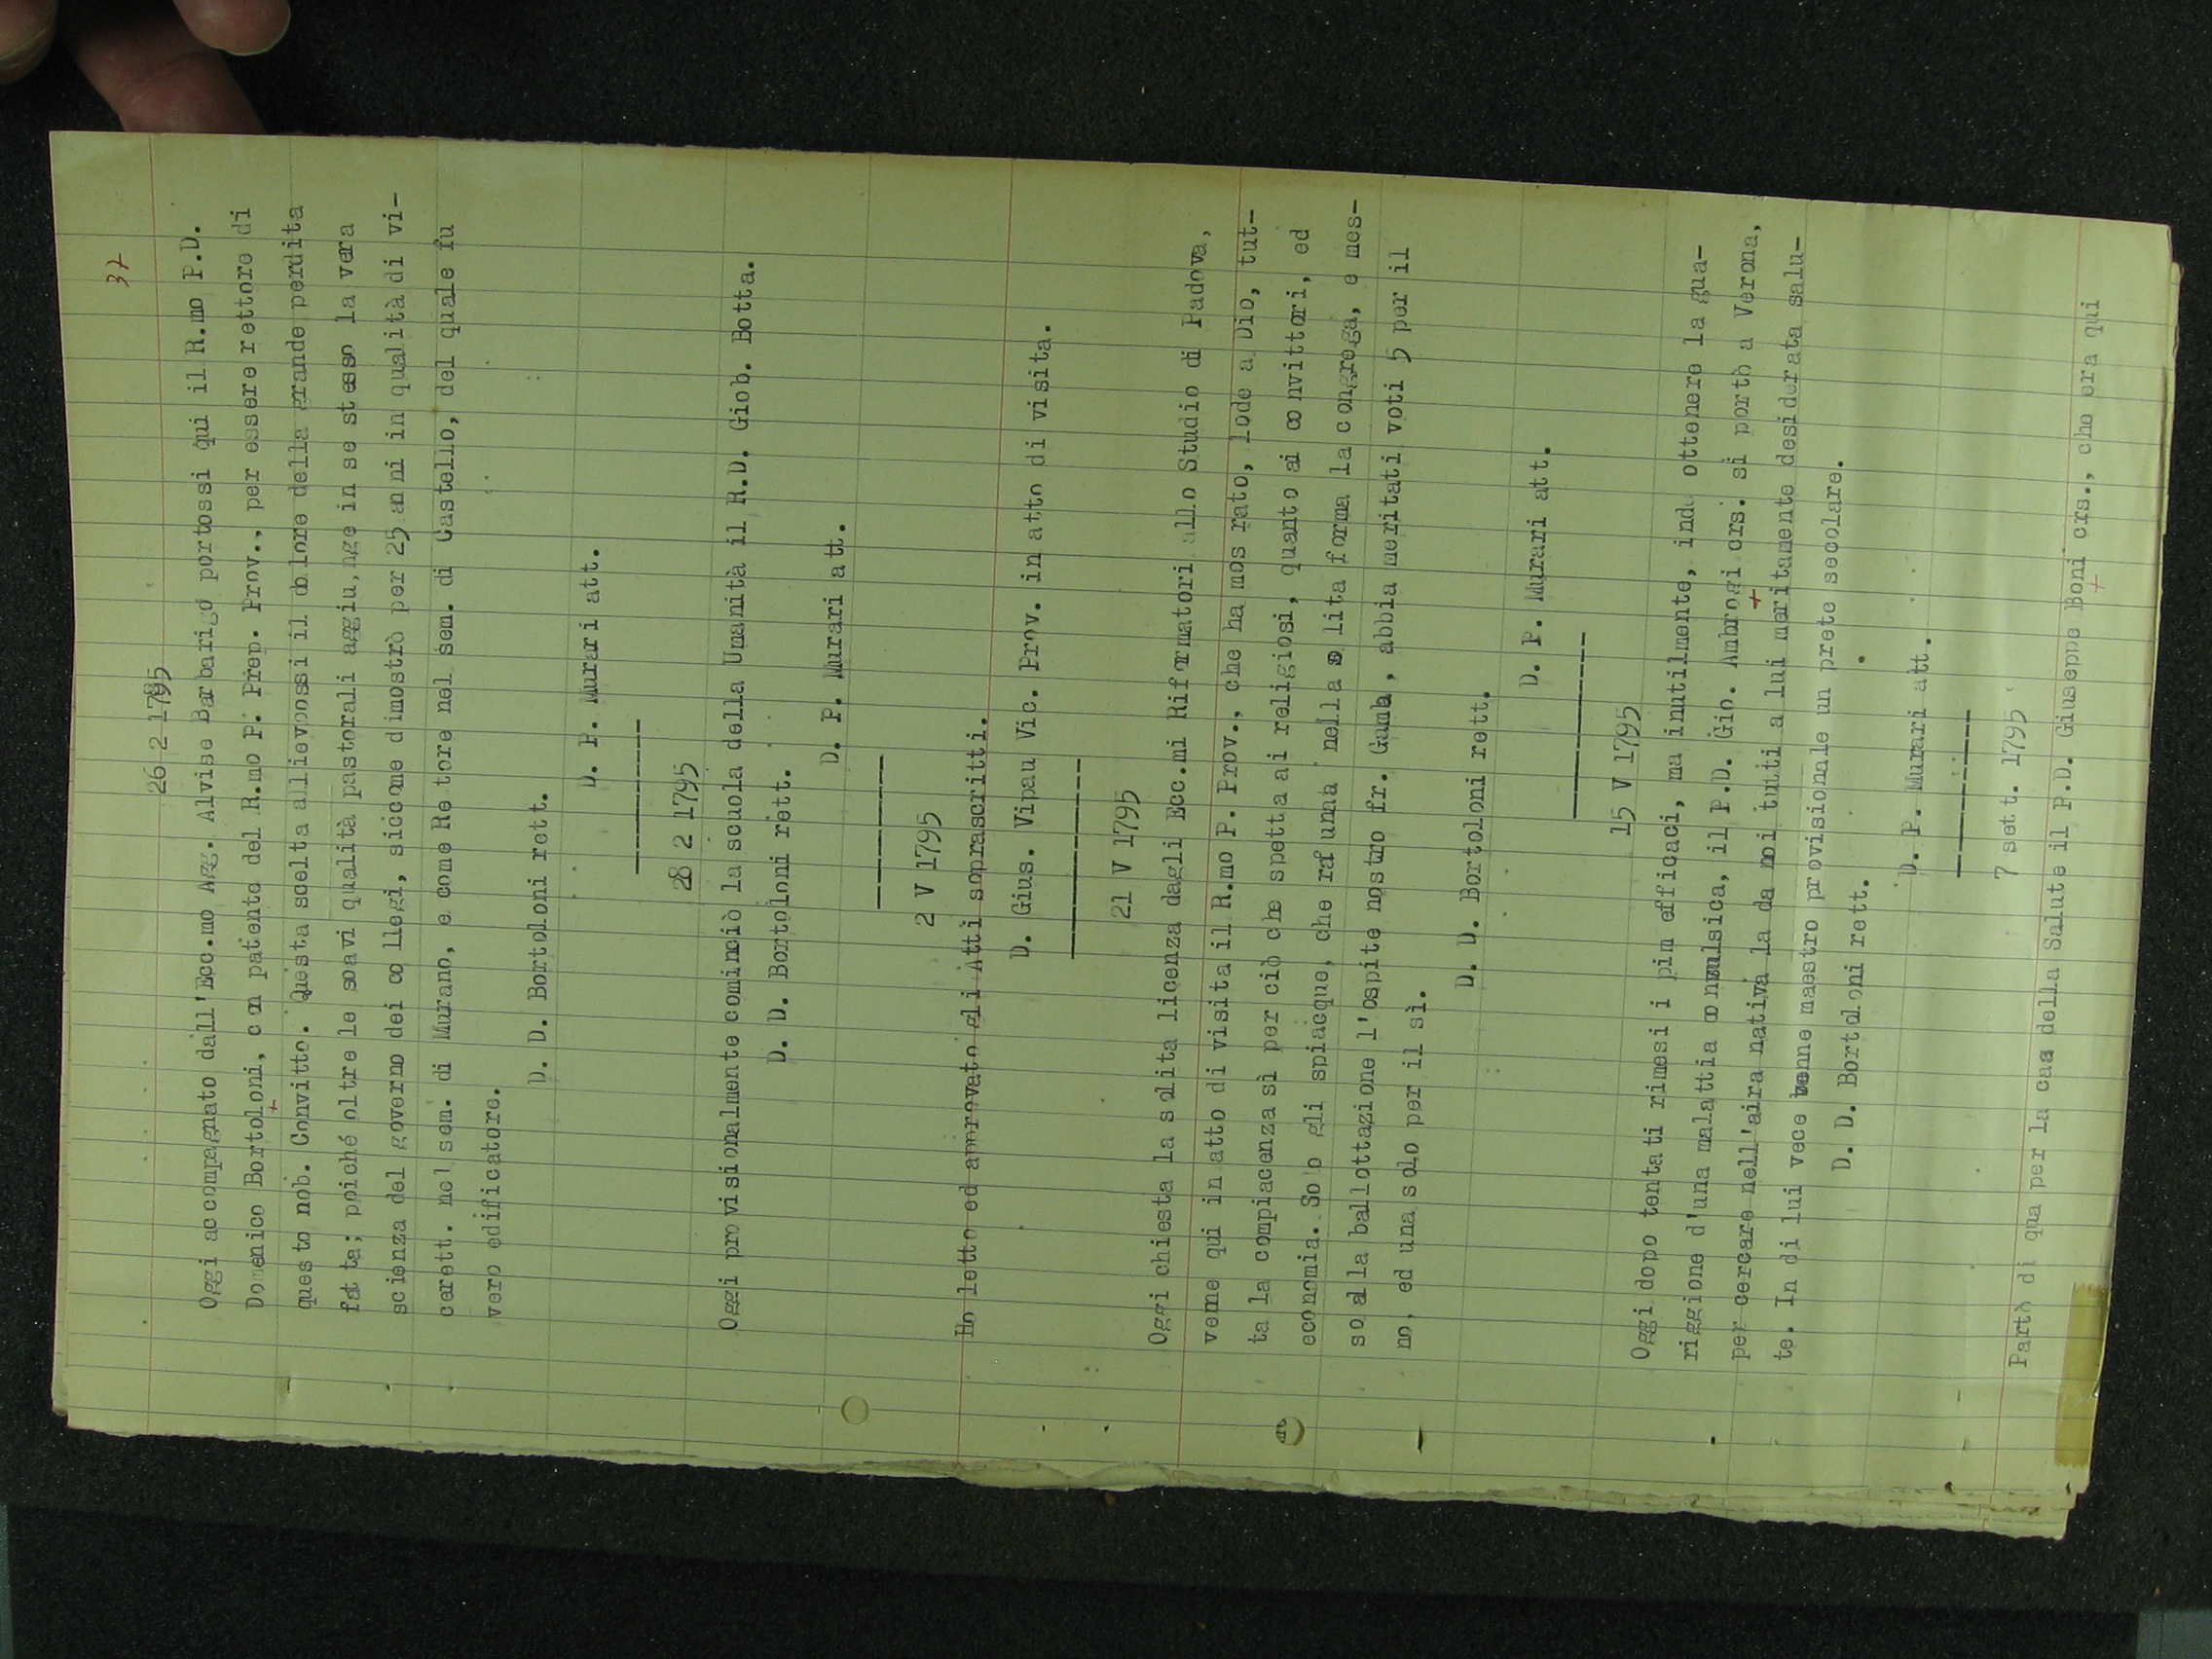 37
26 2 1795
Oggi accompagnato dall'Ecc.mo Agg. Alvise Barbarigo portossi qui il R.mo P.D.
Domenico Bortoloni, con patente del R.mo P. Prep. Prov., per essere rettore di
questo nob. Convitto. Questa scelta allievossi il dolore della grande perdita
fatta; poiché oltre le soavi qualità pastorali aggiu,nge in se stesso la vera
scienza del governo dei collegi, siccome dimostrò per 25 anni in qualità di vi-
cerett. nel sem. di Murano, e come Rettore nel sem. di Castello, del quale fu
vero edificatore.
D. D. Bortoloni rett.
D. P. Murari att.
----------
28 2 1795
Oggi provisionalmente cominciò la scuola della Umanità il R.D. Giob. Botta.
D. D. Bortoloni rett.
D. P. Murari att.
----------
2 V 1795
Ho letto ed approvato gli Atti soprascritti.
D. Gius. Vipau Vic. Prov. in atto di visita.
-------------
21 V 1795
Oggi chiesta la solita licenza dagli Ecc.mi Riformatori allo Studio di Padova,
venne qui in atto di visita il R.mo P. Prov., che ha mosrato, lode a Dio, tut-
ta la compiacenza sì per ciò che spetta ai religiosi, quanto ai convittori, ed
economia. Solo gli spiacque, che raunna nella solita forma la congrega, e mes-
so alla ballottazione l'ospite nostro fr. Gamba, abbia meritati voti 5 per il
no, ed una solo per il sì.
D. D. Bortoloni rett.
D. P. Murari att.
------------
15 V 1795
Oggi dopo tentati rimesi i pim efficaci, ma inutilmente, indi ottenere la gua-
riggione d'una malattia convulsica, il P.D. Gio. Ambrogi crs. si portò a Verona,
per cercare nell'aira nativa la da noi tutti a lui meritamente desiderata salu-
te. In di lui vece venne maestro provisionale un prete secolare.
D. D. Bortoloni rett.
D. P. Murari att.
-----------
7 sett. 1795
Partò di qua per la casa della Salute il P.D. Giuseppe Boni crs., che era qui